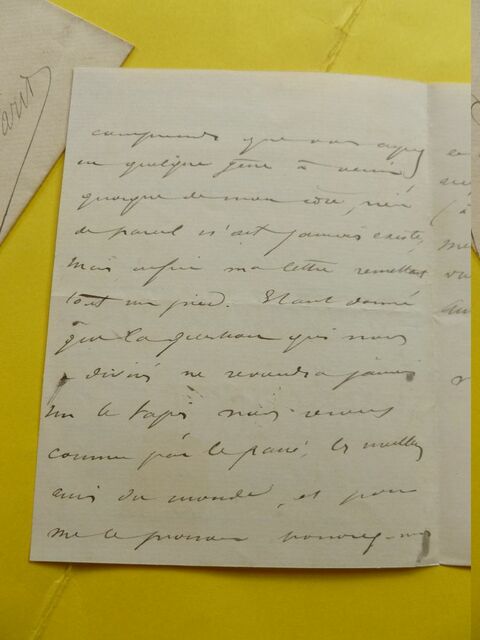 comprends que vous ayez
eu quelque gêne à venir
quoique de mon côté, rien
de pareil n'ait jamais existé,
mais enfin ma lettre remettait
tout sur pied. Etant donné
que la question qui nous
a divisés ne reviendra jamais
sur le tapis nous serons
comme par le passé, les meilleurs
amis du monde, et pour
me le prouver
Paris